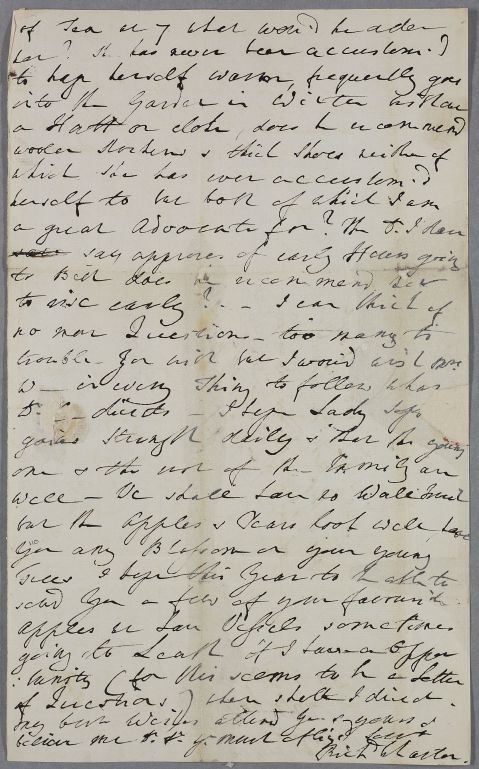 of Tea or & what wou'd he order
her? She has never been accustom'd
to keep herself warm, frequently goes
into the Garden in Winter without
a Hatt or cloke, does he recommend
woolen Stockens & thick Shoes neither of
which She has ever accustom'd
herself to but both of which I am
a great Advocate for? The Dr. I dare
say approves of early Hours going
to Bed does he recommend her
to rise early? - - I can think of
no more Questions - too many to
trouble you with but I would wish Mrs
W - in every thing to follow what
Dr. directs - I hope Lady
gains Strength daily & that the young
one & the rest of the Family are
well - We shall have no Wall fruit
but the Apples & Pears look well, have
you any Blossom on your young
trees I hope this Year to be able to
send you a few of your favourite
apples we have Vessels sometimes
going to Leath if I have an Oppor
:tunity (for this seems to be a letter
of Questions) where shall I direct -
my best Wishes attend you & yours &
believe me Dr. Sr. yr. most
Richd